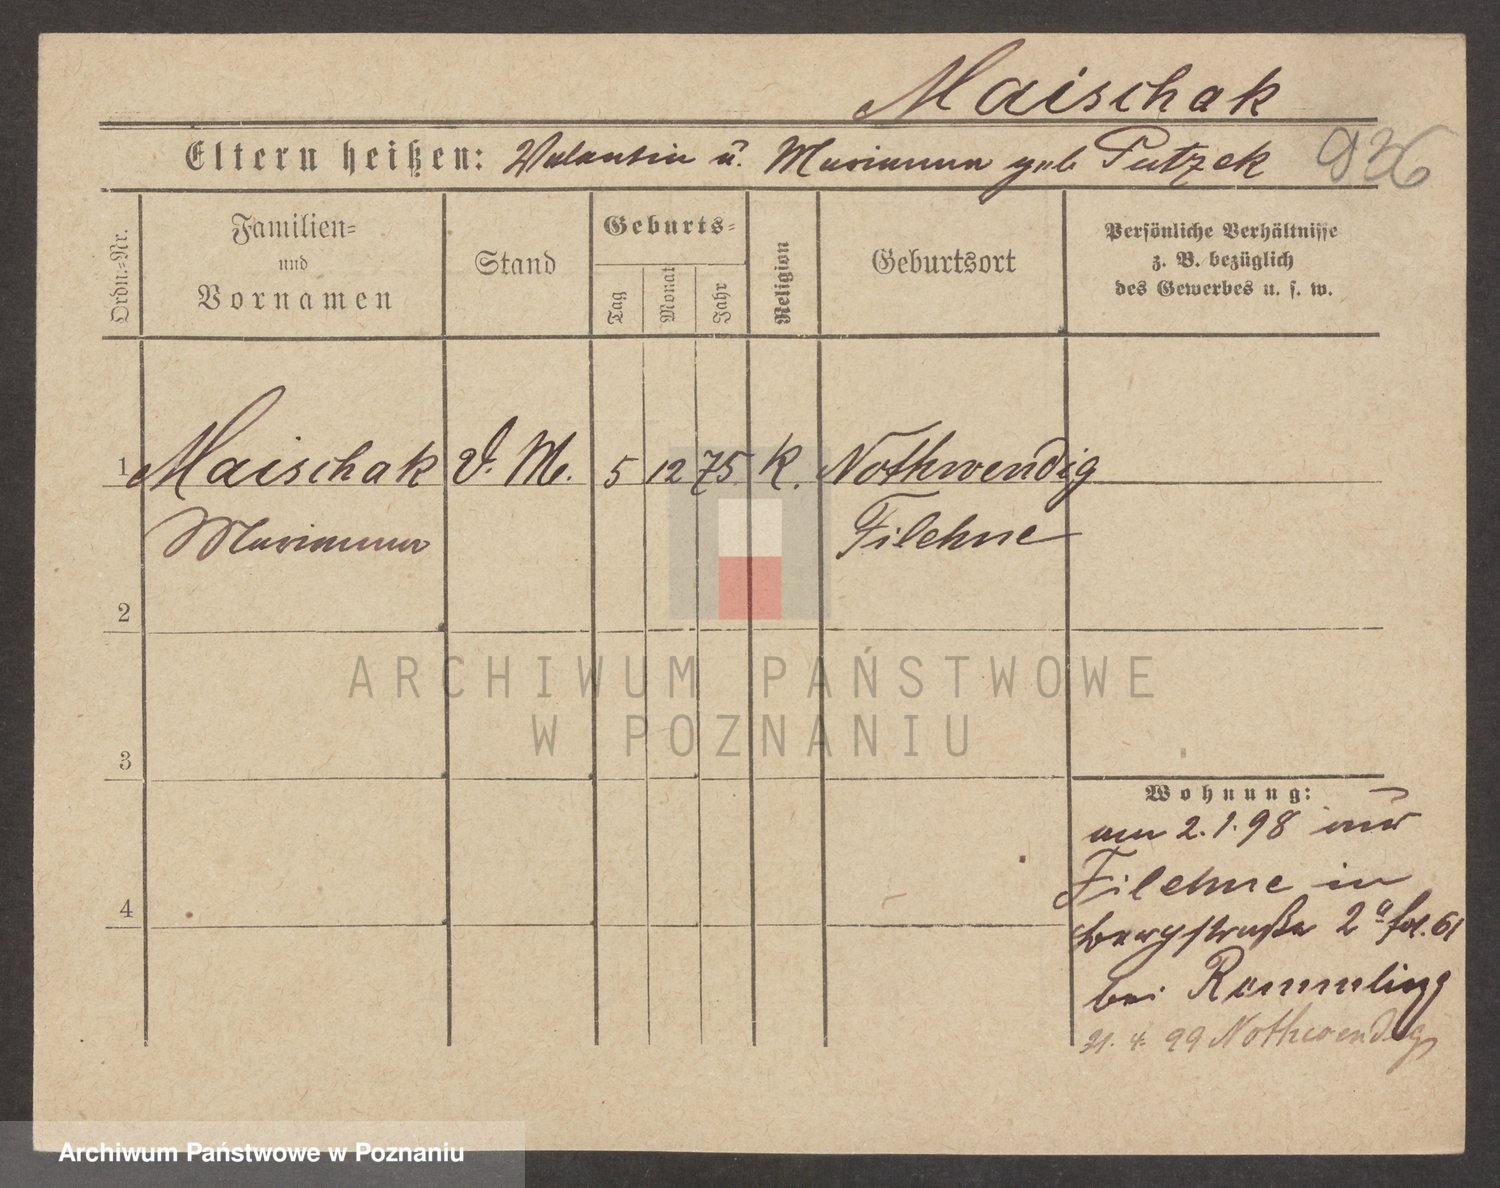 Maischak
Eltern heißen: Valentin u. Marianna geb Putzek 936
Ordn.=Nr.
Familien=
und
Vornamen
Stand
Geburts=
Tag
Monat
Jahr
Religion
Geburtsort
Persönliche Verhältnisse
z. B. bezüglich
des Gewerbes u. s. w.
1 Maischak D. M. 5 12 75 K. Nothwendig
Marianna Filehne
2
ARCHIWUM PAŃSTWOWE
W POZNANIU
3
Wohnung:
am 2.1.98 aus
Filehne in
Bergstraße 2a fol. 61
bei Rommling
4
21. 4. 99 Nothwendig
Archiwum Państwowe w Poznaniu